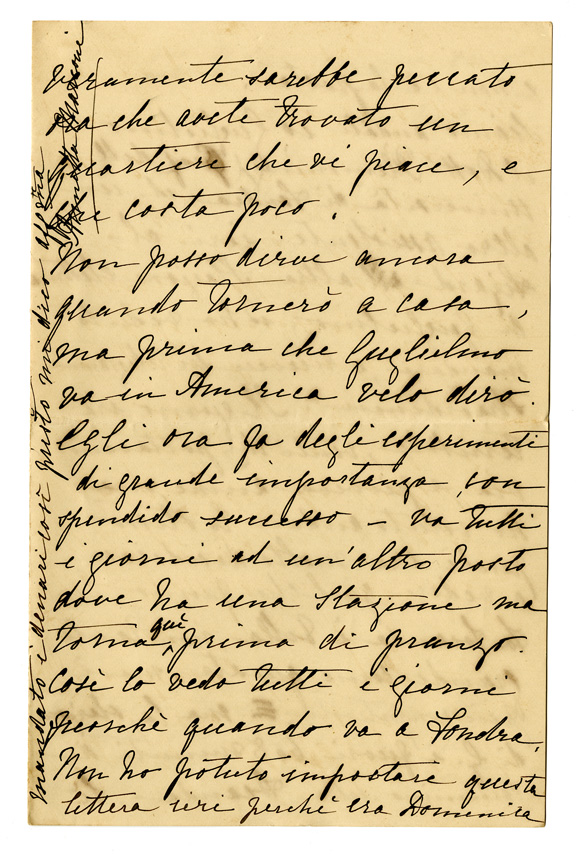 veramente sarebbe peccato
ora che avete trovato un
quartiere che vi piace, e
che costa poco.
Non posso dirvi ancora
quando tornerò a casa,
ma prima che Guglielmo
va in America velo dirò.
Egli ora fa degli esperimenti
di grande importanza, con
spendido successo – va tutti
i giorni ad un'altro posto
dove ha una Stazione ma
torna quì, prima di pranzo.
Così lo vedo tutti i giorni
perchè quando va a Londra,
Non ho potuto impostare questa
littera ieri perchè era Domenica
mandato i denari così presto mi dico aff
Marconi